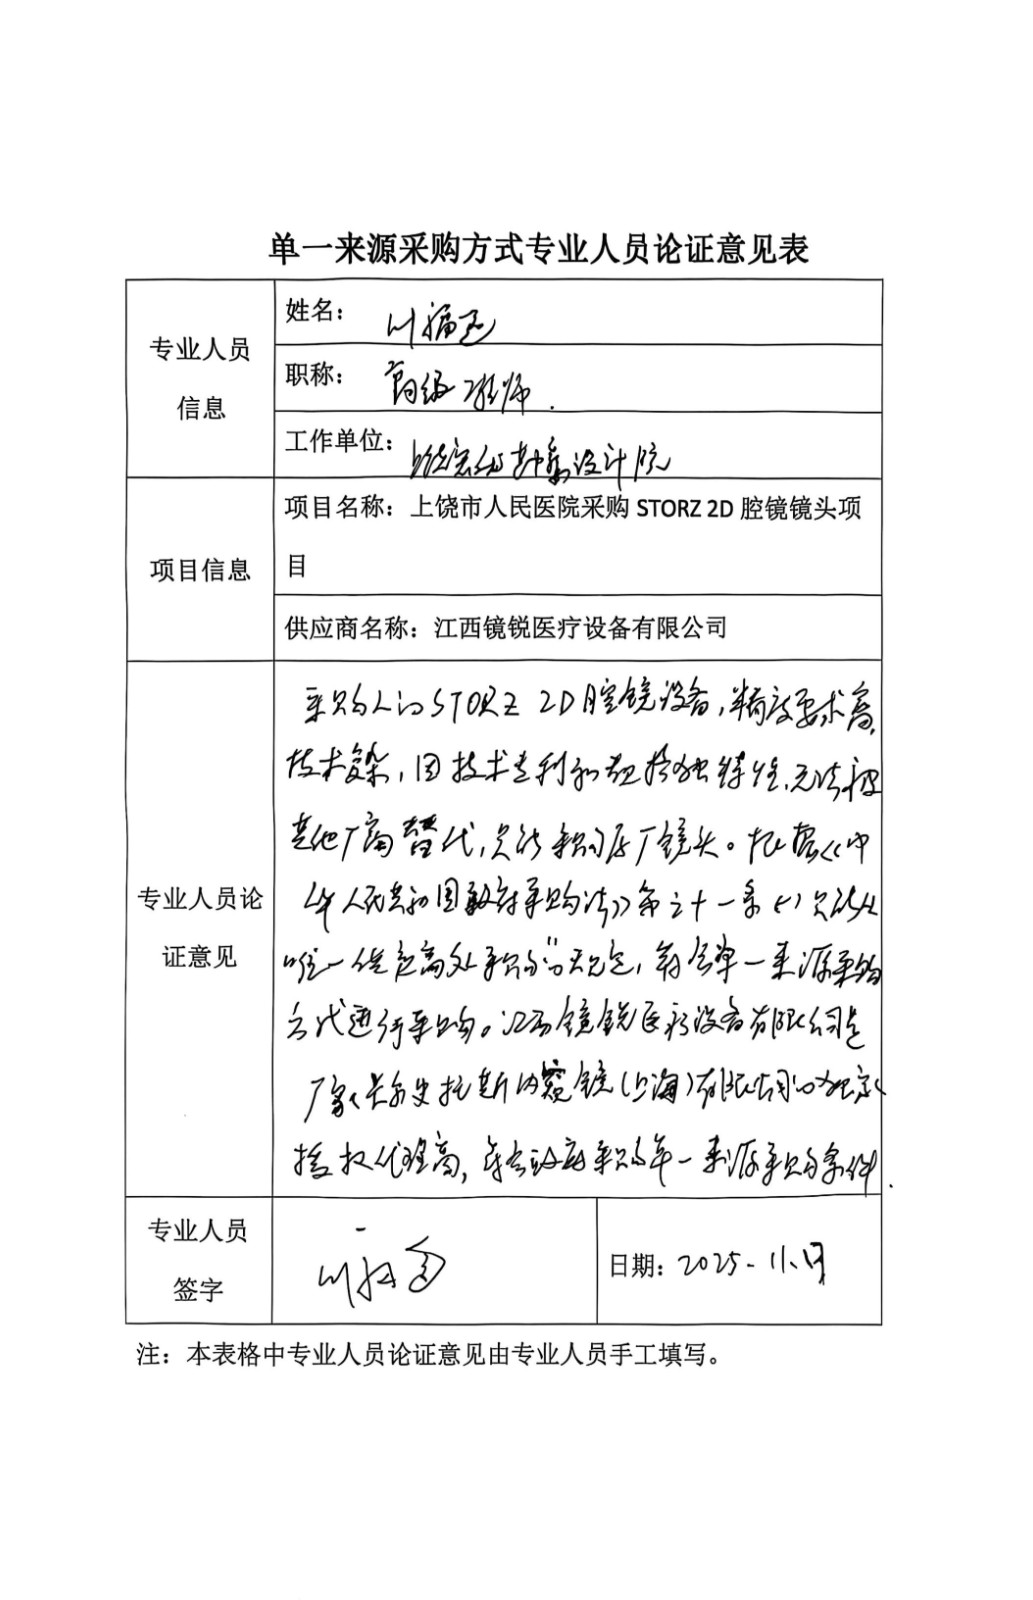 单一来源采购方式专业人员论证意见表
专业人员
信息
姓名：
职称：高级工程师.
工作单位：勘察设计院
项目信息
项目名称：上饶市人民医院采购 STORZ 2D 腔镜镜头项
目
供应商名称：江西镜锐医疗设备有限公司
专业人员论
证意见
采购人的STORZ 2D腔镜设备,精度要求高,
技术复杂,因技术专利和规格独特性,无法被
其他厂商替代,只能采购原厂镜头。根据《中
华人民共和国政府采购法》第三十一条(一)只能从
唯一供应商处采购"的规定,符合单一来源采购
方式进行采购。江西镜锐医疗设备有限公司是
厂家卡尔史托斯内窥镜(上海)有限公司的独家
授权代理商,符合政府采购单一来源采购条件.
专业人员
签字
日期：2025-11.
注：本表格中专业人员论证意见由专业人员手工填写。